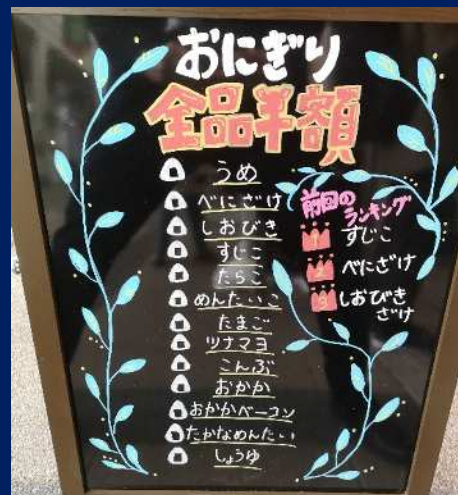 おにぎり
全品半額
うめ
べにざけ
しおびき
すじこ
たらこ
めんたいこ
たまご
ツナマヨ
こんぶ
おかか
おかかベーコン
たかなめんたい
しょうゆ
前回の
ランキング
1 すじこ
2 べにざけ
3 しおびき
ざけ